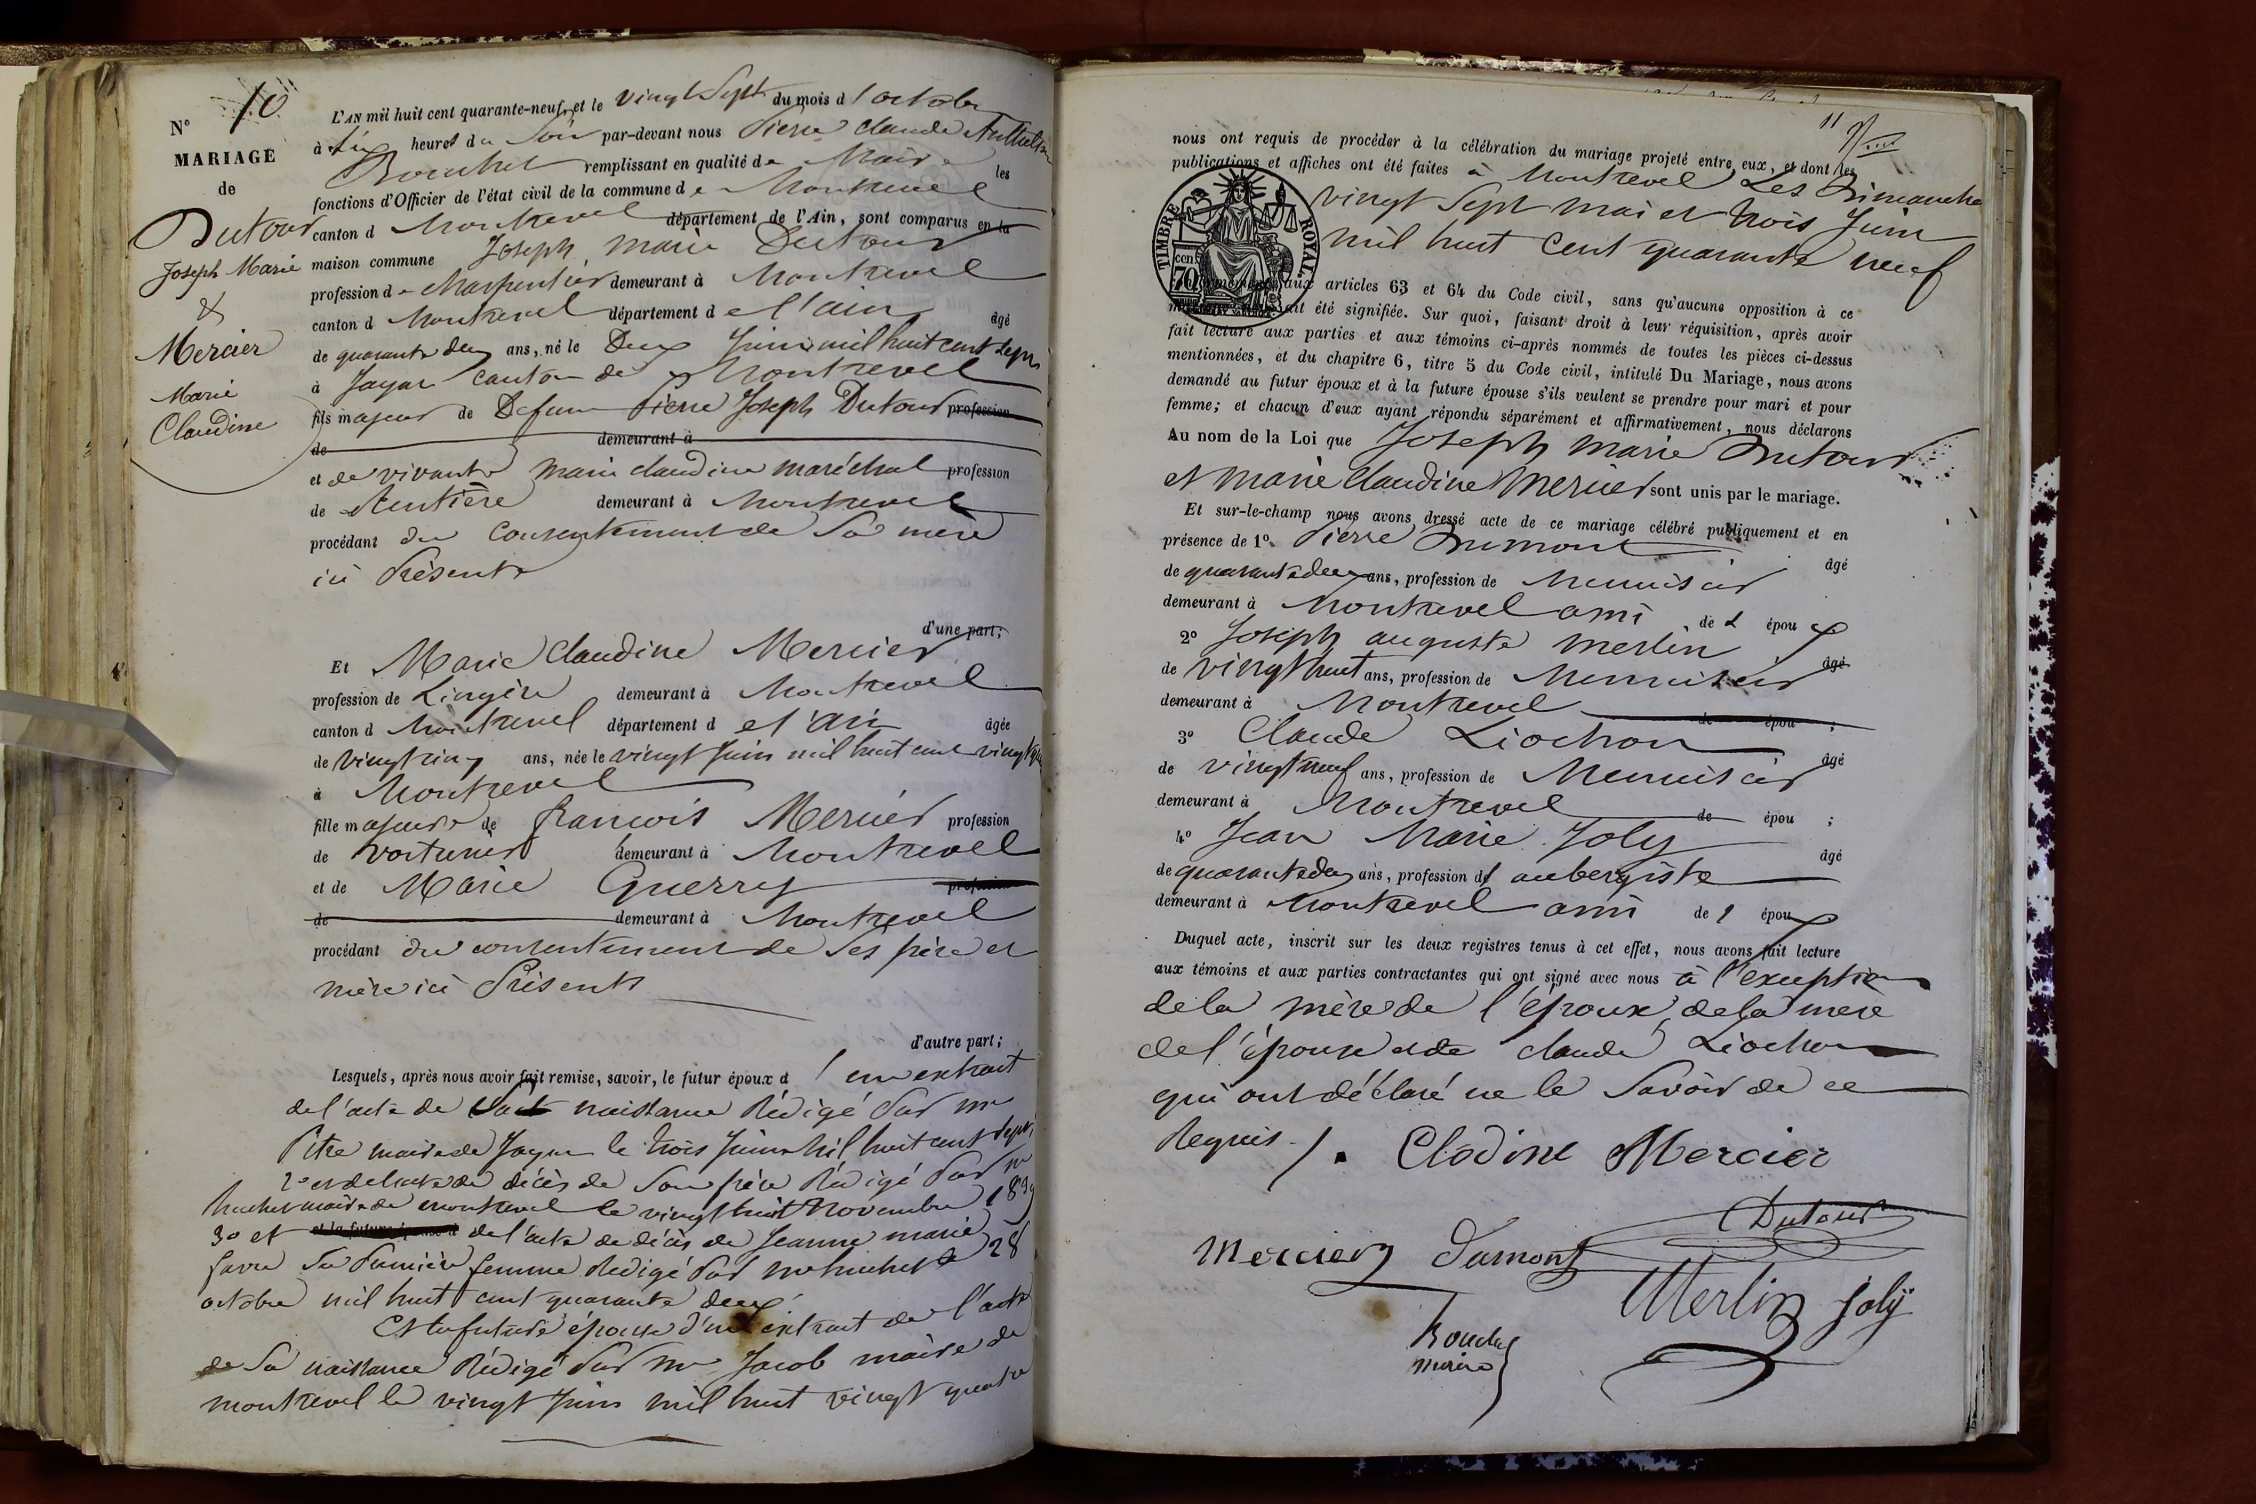 N° 10
MARIAGE
de
Dutour
Joseph Marie
&
Mercier
Marie
Claudine
L'AN mil huit cent quarante-neuf, et le vingt Sept du mois d'octobre
à Six heures du Soir par-devant nous Pierre Claude
Bouchet remplissant en qualité de Maire les
fonctions d'Officier de l'état civil de la commune de Montrevel
canton d Montrevel département de l'Ain, sont comparus en la
maison commune Joseph Marie Dutour
profession de Charpentier demeurant à Montrevel
canton d Montrevel département de l'ain âgé
de quarante deux ans, né le Deux Juin mil huit cent Sept
à Jayat canton de Montrevel
fils majeur de Defunt Pierre Joseph Dutour profession
de demeurant à
et de vivante marie claudine maréchal profession
de Rentière demeurant à Montrevel
procédant du Consentement de Sa mère
ici Présente
d'une part;
Et Marie Claudine Mercier
profession de Lingère demeurant à Montrevel
canton d Montrevel département de l'ain âgée
de vingt cinq ans, née le vingt Juin mil huit cent vingt
à Montrevel
fille majeure de francois Mercier profession
de voiturier demeurant à Montrevel
et de Marie Guerry profession
de demeurant à Montrevel
procédant du consentement de Ses père et
mère ici Présents
d'autre part;
Lesquels, après nous avoir fait remise, savoir, le futur époux d'un extrait
de l'acte de naissance Rédigé Par mr
Pitre maire de Jayat le trois Juin mil huit cent Sept,
2° et de l'acte de décès de Son père Rédigé Par mr
maire de montrevel le vingt huit Novembre 1839
3° et et la future épouse d de l'acte de décès de Jeanne marie
favre Sa Première femme Rédigé Par mr le 28
octobre mil huit cent quarante deux
Et la future épouse d'un extrait de l'acte
de Sa naissance Rédigé Par mr Jacob maire de
montrevel le vingt Juin mil huit vingt quatre
11
nous ont requis de procéder à la célébration du mariage projeté entre eux, et dont les
publications et affiches ont été faites à Montrevel Les Dimanche
vingt Sept mai et trois Juin
mil huit cent quarante neuf
TIMBRE ROYAL.
70 cen
aux articles 63 et 64 du Code civil, sans qu'aucune opposition à ce
ait été signifiée. Sur quoi, faisant droit à leur réquisition, après avoir
fait lecture aux parties et aux témoins ci-après nommés de toutes les pièces ci-dessus
mentionnées, et du chapitre 6, titre 5 du Code civil, intitulé Du Mariage, nous avons
demandé au futur époux et à la future épouse s'ils veulent se prendre pour mari et pour
femme; et chacun d'eux ayant répondu séparément et affirmativement, nous déclarons
Au nom de la Loi que Joseph Marie Dutour
et Marie Claudine Mercier sont unis par le mariage.
Et sur-le-champ nous avons dressé acte de ce mariage célébré publiquement et en
présence de 1° Pierre Dumont âgé
de quarante deux ans, profession de Menuisier
demeurant à Montrevel ami de l époux
2° Joseph auguste Merlin âgé
de vingt huit ans, profession de Menuisier
demeurant à Montrevel de épou ;
3° Claude Liochon âgé
de vingt neuf ans, profession de Menuisier
demeurant à Montrevel de épou ;
4° Jean Marie Joly âgé
de quarante deux ans, profession d aubergiste
demeurant à Montrevel ami de l époux
Duquel acte, inscrit sur les deux registres tenus à cet effet, nous avons fait lecture
aux témoins et aux parties contractantes qui ont signé avec nous à l'exception
de la mère de l'époux, de la mère
de l'épouse et de claude Liochon
qui ont déclaré ne le Savoir de ce
Requis ./.
Clodine Mercier
Dutour
Mercier Dumont
Merlin Joly
Bouchet
maire